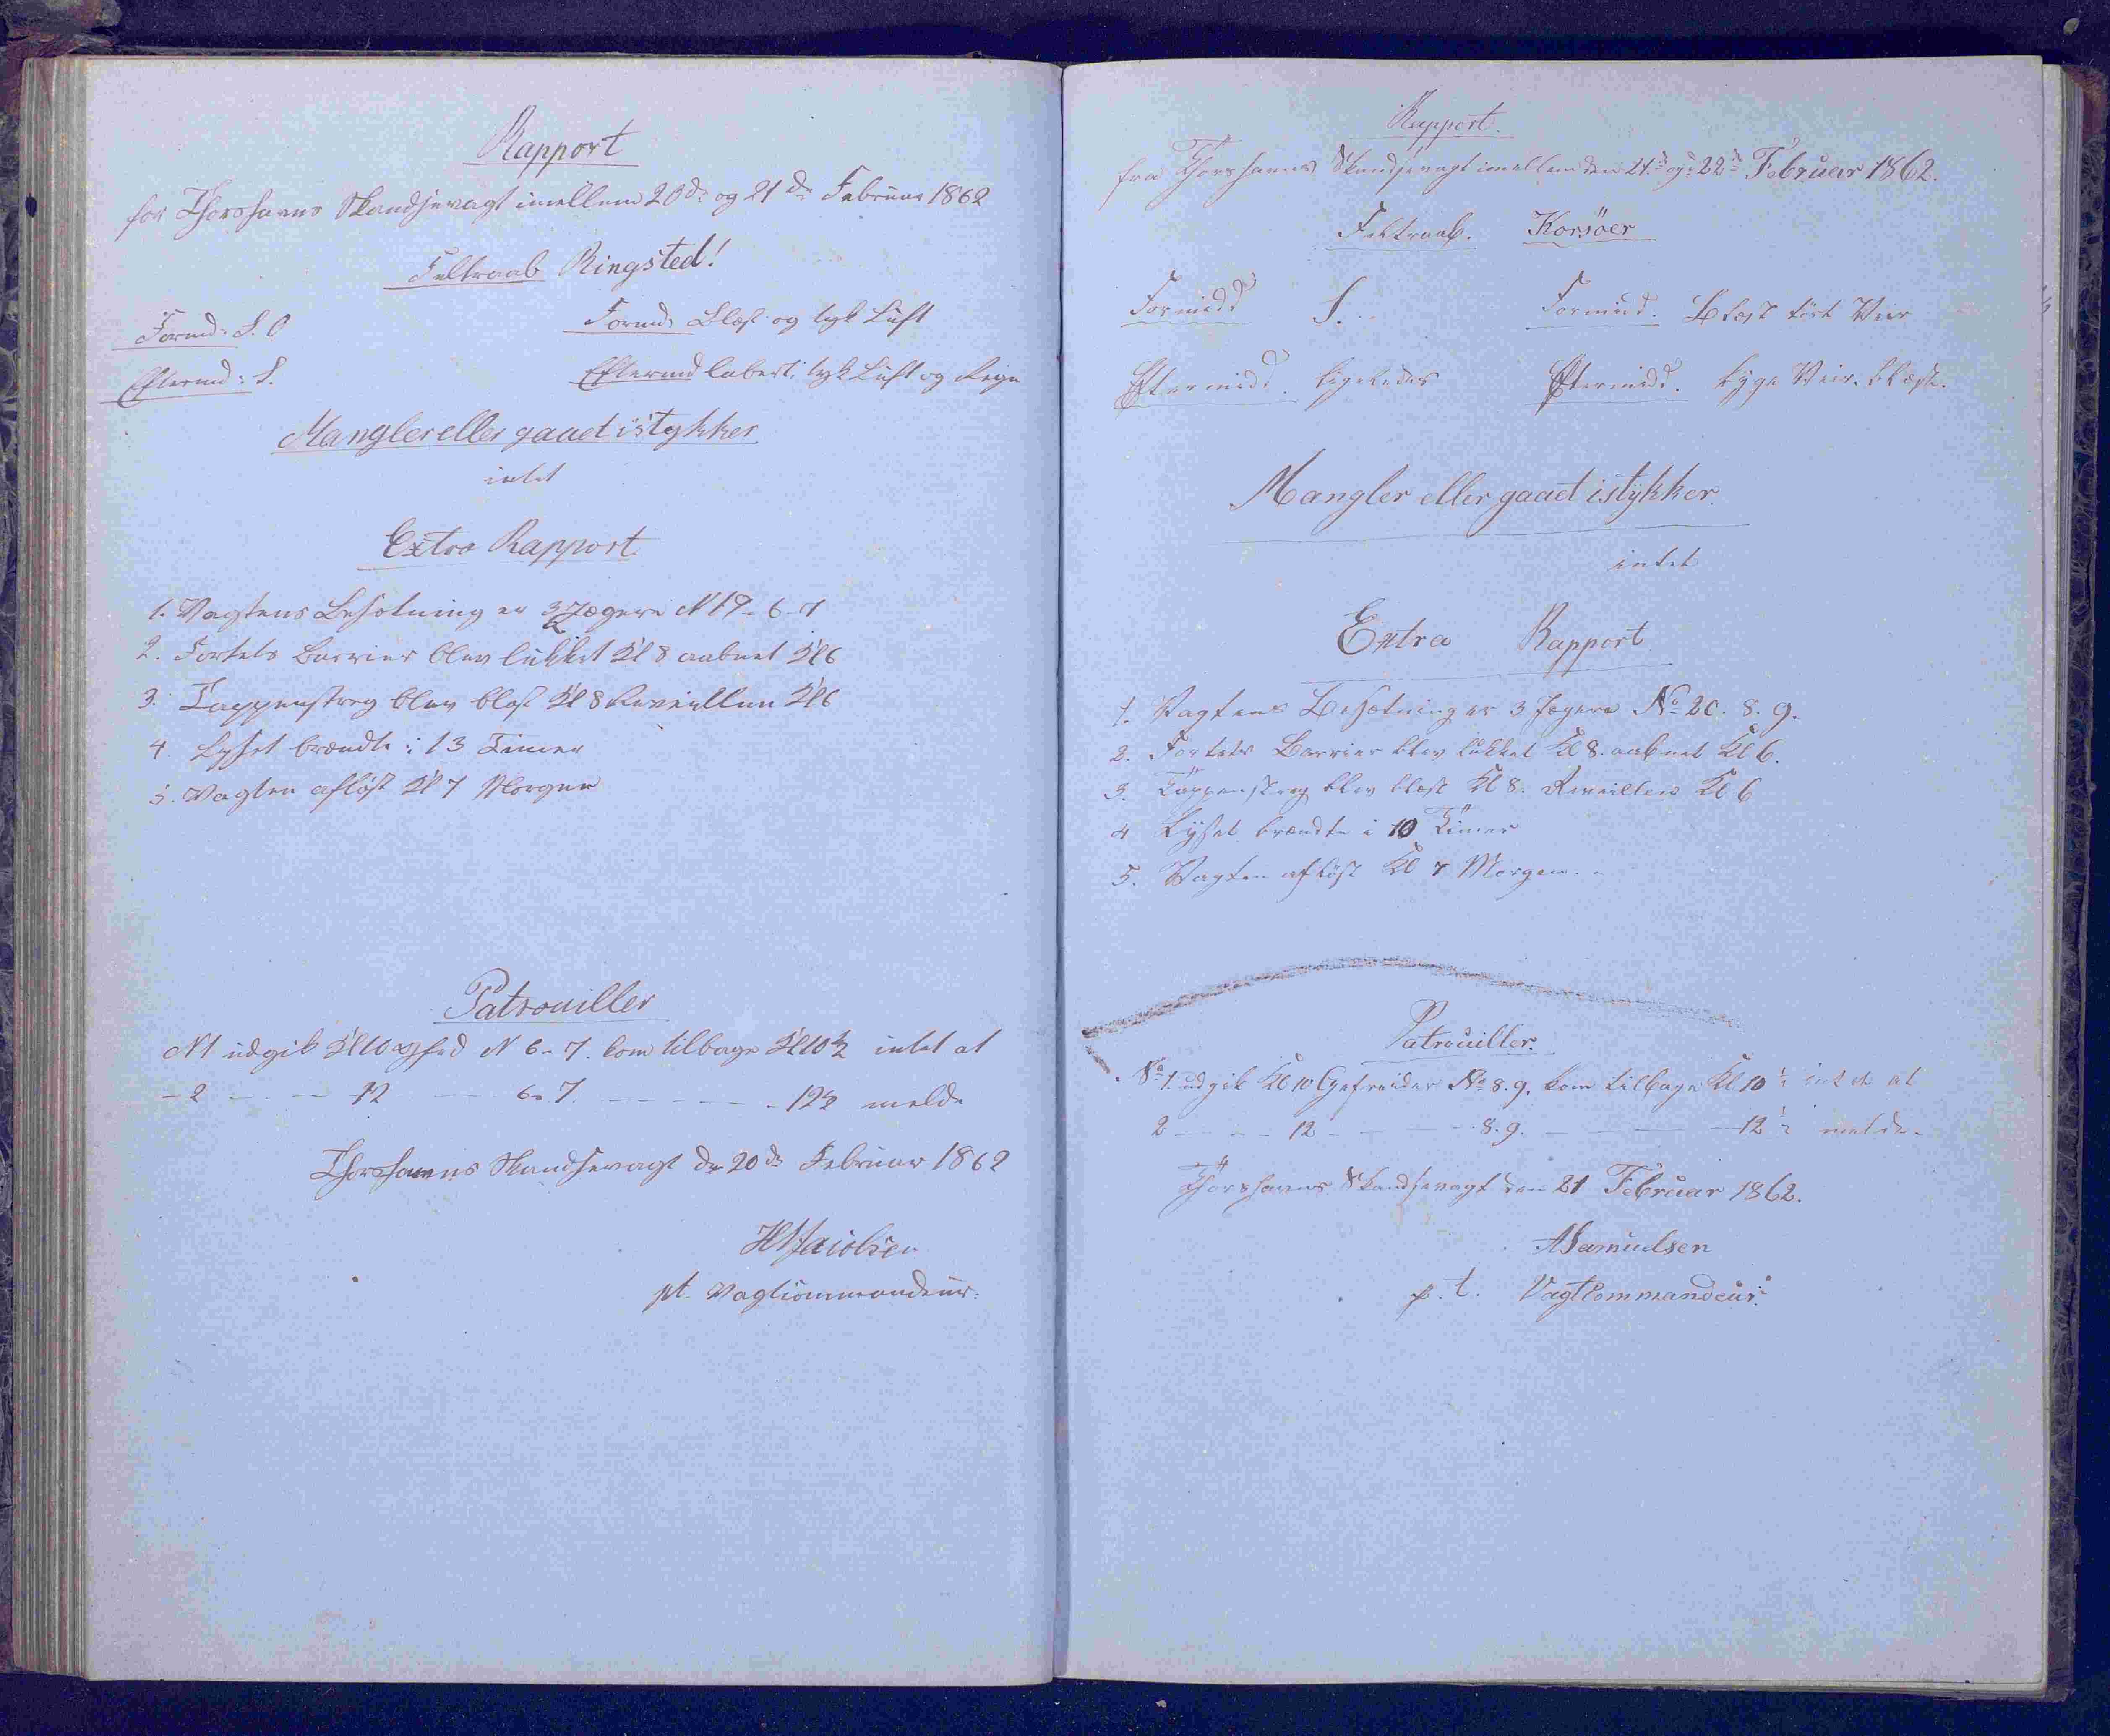 Rapport
for Thorshavns Skandsevagt imellem 20de og 21de Februar 1862
Feltraab Ringsted!
Formd: S. O
Formd: Blæst og tyk Luft
Eftermd: S.
Eftermd labert, tyk Luft og Regn
Mangler eller gaaet istykker
intet
Extra Rapport
1. Vagtens Besætning er 3 Jægere N 19-6-7
2. Fortets Barrier blev lukket Kl 8 aabnet Kl 6
3. Tappenstreg blev blæst Kl 8 Reveillen Kl 6
4. Lyset brændte i 13 Timer
5. Vagten afløst Kl 7 Morgen
Patrouiller
N 1 udgik Kl 10 N 6-7. kom tilbage Kl 10½ intet at
- 2 - - - 12 - - 6-7. - - - - - 12½ melde
Thorshavns Skandsevagt d. 20de Februar 1862
Jacobsen
pt. Vagtcommandeur.
Rapport.
fra Thorshavns Skandsevagt imellem den 21de og 22de Februar 1862.
Feltraab. Korsöer
Formidd S.
Formidd. Blæst tört Veir
Eftermidd. ligeledes
Eftermidd. Veir. blæst.
Mangler eller gaaet istykker
intet
Extra Rapport.
1. Vagtens Besætning er 3 Jægere No 20. 8. 9.
2. Fortets Barrier blev lukket Kl 8. aabnet Kl 6.
3. Tappenstreg blev blæst Kl 8. Reveillen Kl 6
4 Lyset brændte i 10 Timer
5. Vagten aflöst Kl 7 Morgen.
Patrouiller.
No 1. udgik Kl 10 Gefreider No 8. 9. kom tilbage Kl 10½ intet at
2 - - - 12 - - - 8. 9. - - - 12½ melde.
Thorshavns Skandsevagt den 21 Februar 1862.
Samuelsen
p. t. Vagtcommandeur.